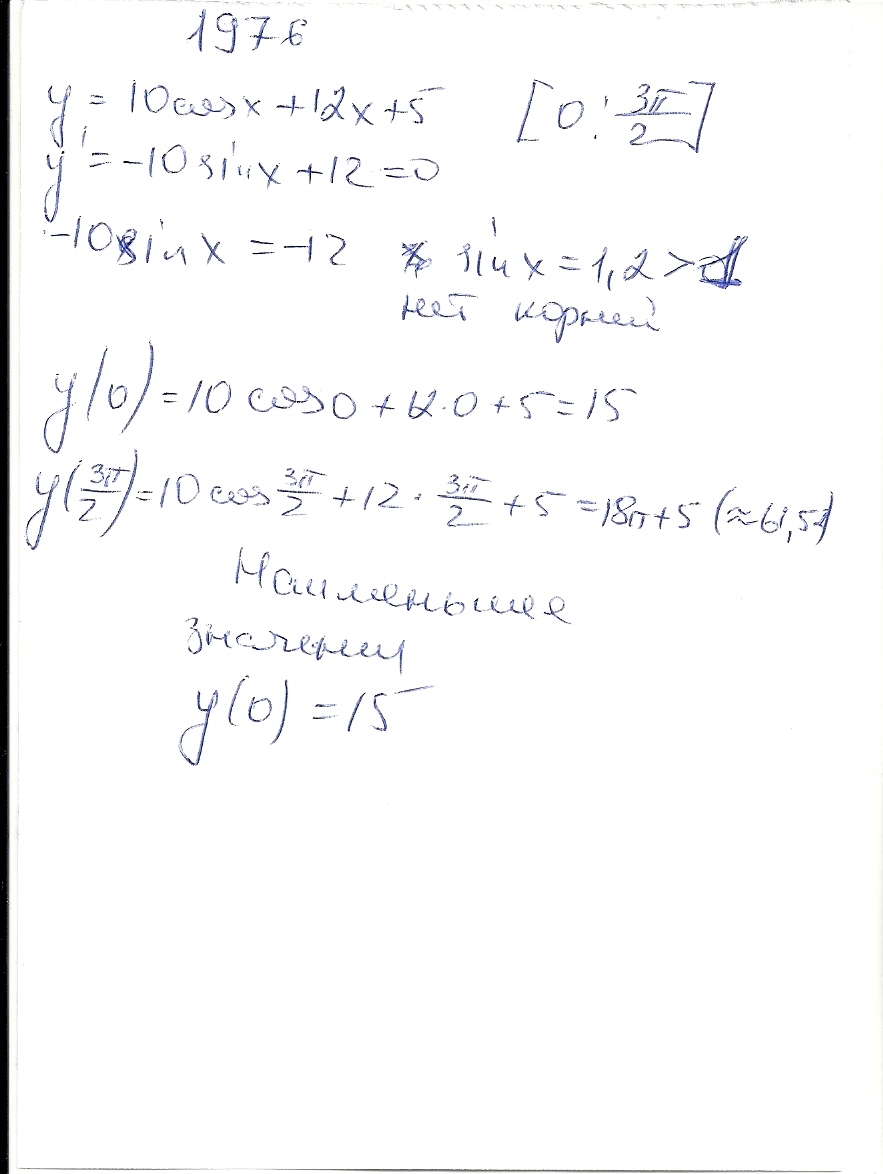 1976
y = 10cosx + 12x + 5 [0; 3π/2]
y' = -10 sinx + 12 = 0
-10sinx = -12 sinx = 1,2 > 1
нет корней
y(0) = 10 cos0 + 12·0 + 5 = 15
y(3π/2) = 10 cos 3π/2 + 12 · 3π/2 + 5 = 18π + 5 (≈ 61,51)
Наименьшее
значении
y(0) = 15